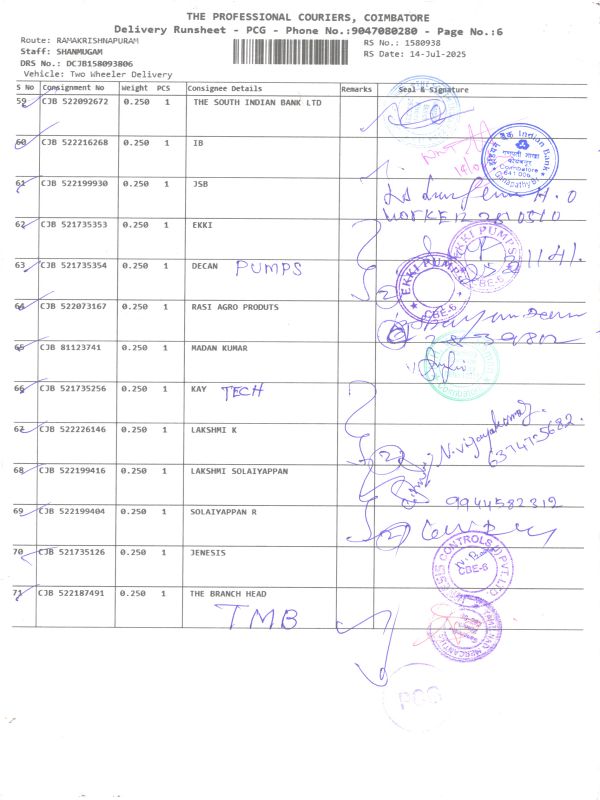 THE PROFESSIONAL COURIERS, COIMBATORE
Delivery Runsheet - PCG - Phone No.:9047080280 - Page No.:6
Route: RAMAKRISHNAPURAM
RS No.: 1580938
Staff: SHANMUGAM
RS Date: 14-Jul-2025
DRS No.: DCJB158093806
Vehicle: Two Wheeler Delivery
S No Consignment No Weight PCS Consignee Details Remarks Seal & Signature
59 CJB 522092672 0.250 1 THE SOUTH INDIAN BANK LTD
60 CJB 522216268 0.250 1 IB
Indian Bank
Coimbatore
641 006
Ganapathy Br
61 CJB 522199930 0.250 1 JSB
62 CJB 521735353 0.250 1 EKKI
EKKI PUMPS
CBE-6
63 CJB 521735354 0.250 1 DECAN PUMPS
2
EKKI PUMPS
CBE-6
64 CJB 522073167 0.250 1 RASI AGRO PRODUTS
65 CJB 81123741 0.250 1 MADAN KUMAR
66 CJB 521735256 0.250 1 KAY TECH
67 CJB 522226146 0.250 1 LAKSHMI K
2
N.Vijayakumar
6374755682
68 CJB 522199416 0.250 1 LAKSHMI SOLAIYAPPAN
9944582312
69 CJB 522199404 0.250 1 SOLAIYAPPAN R
2
70 CJB 521735126 0.250 1 JENESIS
CBE-6
71 CJB 522187491 0.250 1 THE BRANCH HEAD
TMB
PCG